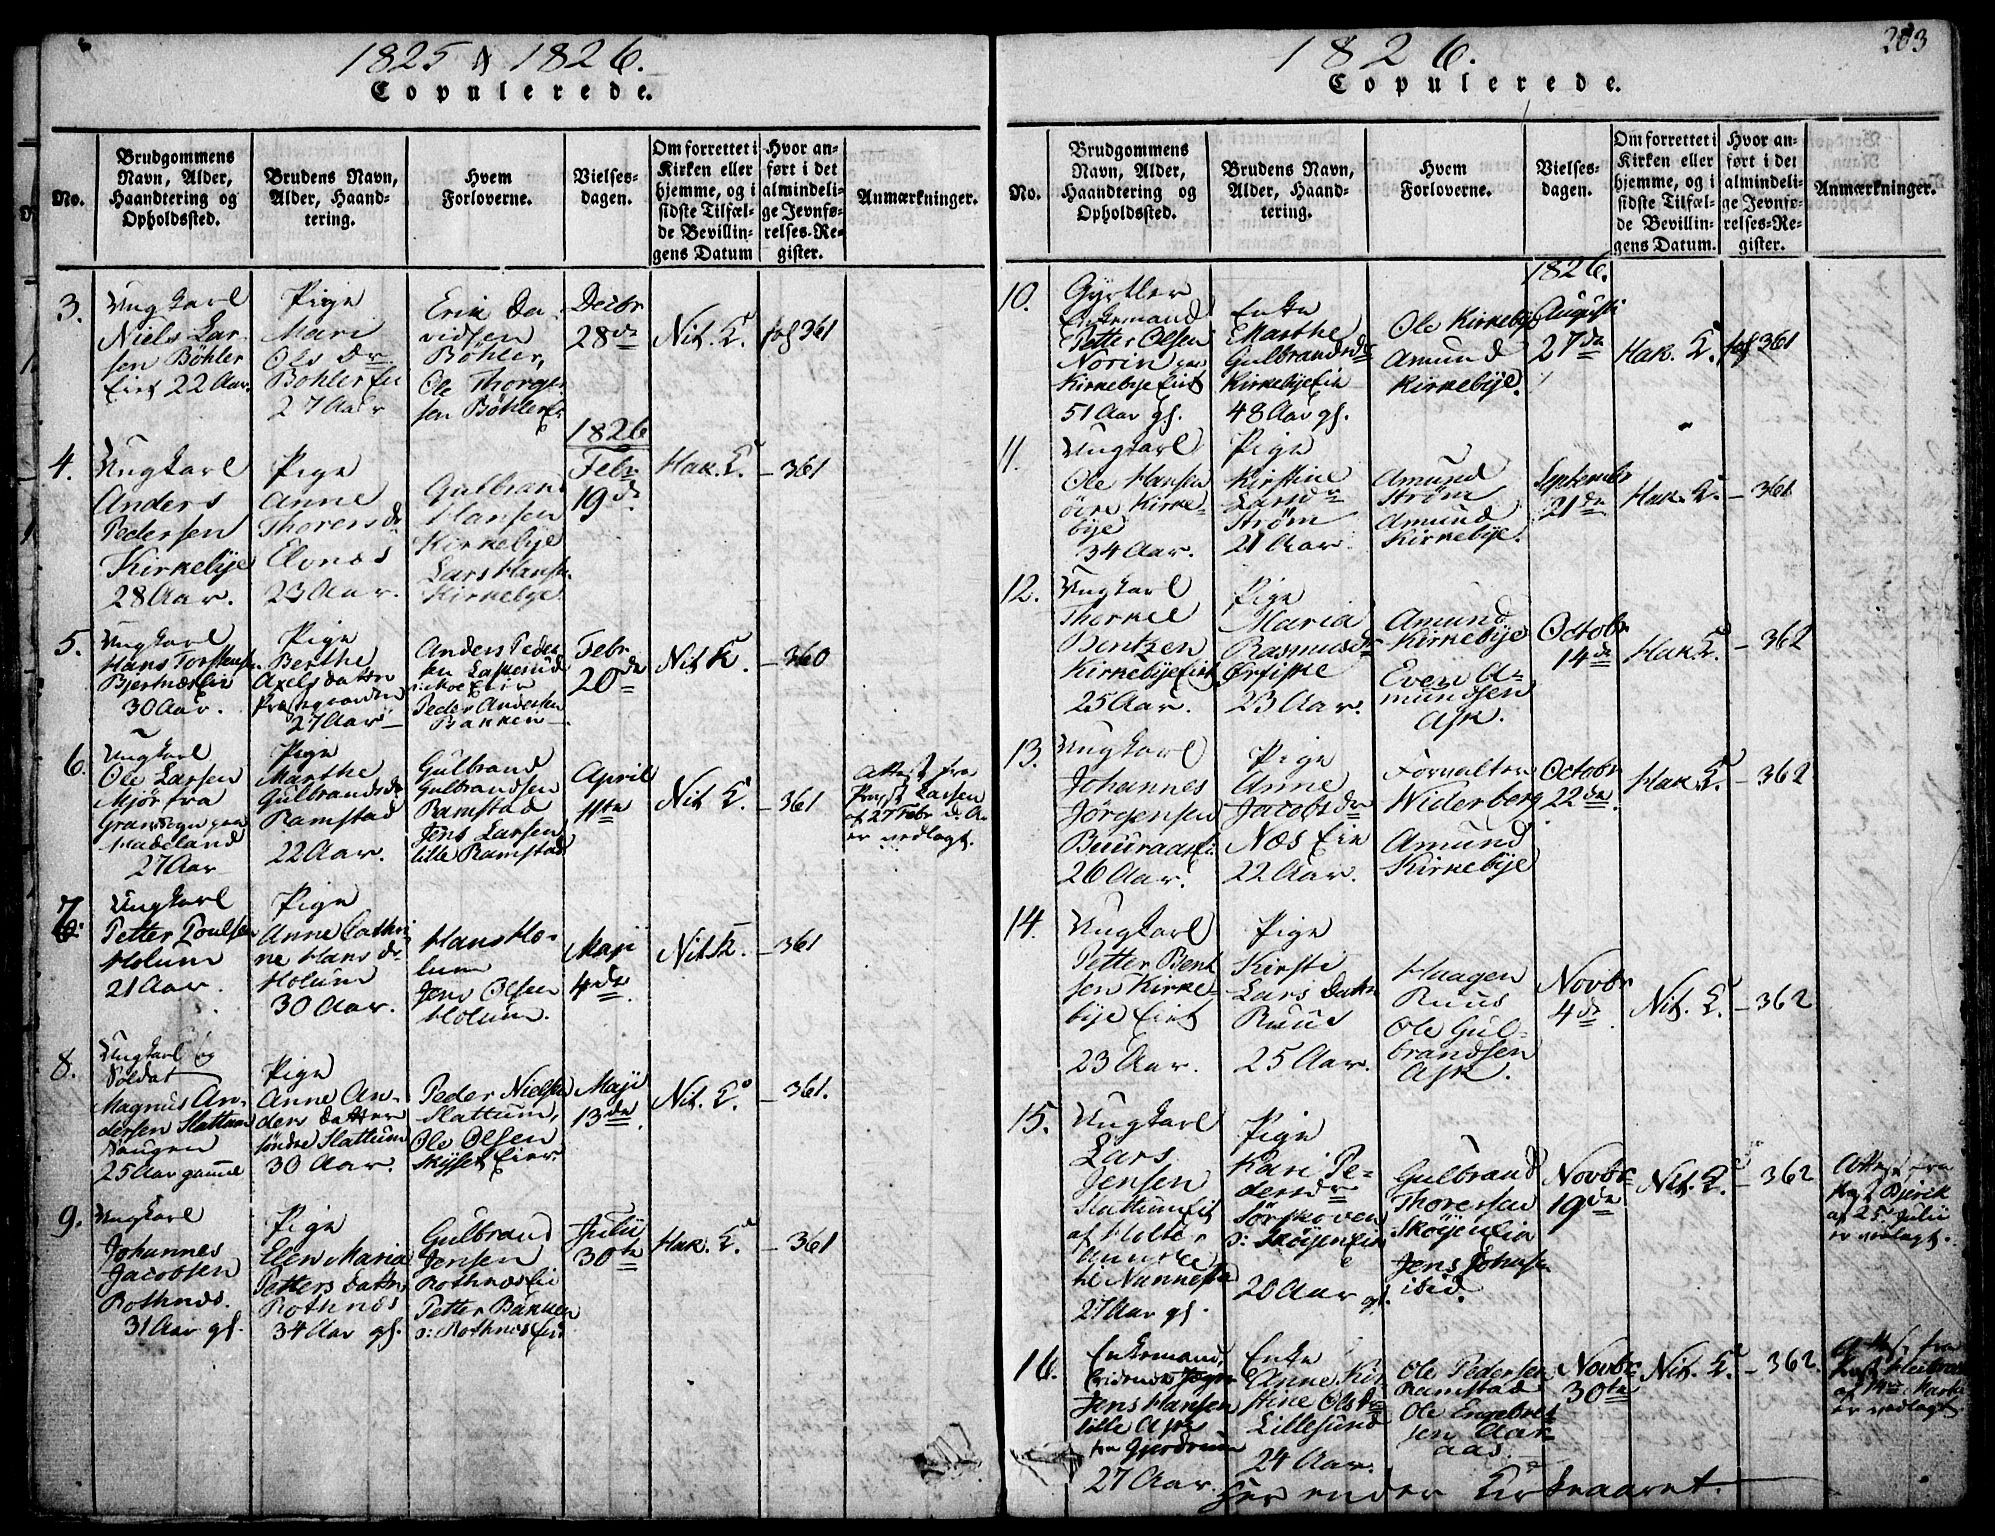 1825 & 1826.
Copulerede.
No.
Brudgommens
Navn, Alder,
Haandtering og
Opholdssted.
Brudens Navn,
Alder, Haand-
tering.
Hvem
Forloverne.
Vielses-
dagen.
Om forrettet i
Kirken eller
hjemme, og i
sidste Tilfæl-
de Bevillin-
gens Datum
Hvor an-
ført i det
almindeli-
ge Jevnfø-
relses-Re-
gister.
Anmærkninger.
3.
Ungkarl
Niels Lar-
sen Böhler
Eiet 22 Aar.
Pige
Mari
Ols Dr.
Böhler Eie
27 Aar
Erik Da-
vidsen
Böhler,
Ole Thorger
sen Böhler
Decbr
28de
Nit. K.
fol 361
4.
Ungkarl
Anders
Pedersen
Kirkebye
28 Aar.
Pige
Anne
Thorersdr
Elvnæs
23 Aar.
Gulbrand
Hansen
Kirkebye
Lars Hansen
Kirkebye
1826
Febr
19de
Hak. K.
- 361
5.
Ungkarl
Hans Torstensen
Bjertnæseie
30 Aar.
Pige
Berthe
Axelsdatter
Præstegaarden
27 Aar
Anders Peder
sen Laskerud
Peder Andersen
Bakken
Febr
20de
Nit K.
- 360
6.
Ungkarl
Ole Larsen
Mjör fra
Gran Sogn paa
Hadeland
27 Aar
Pige
Marthe
Gulbrandsdr
Ramstad
22 Aar.
Gulbrand
Gulbrandsen
Ramstad
Jens Larsen
lille Ramstad
April
11te
Nit K.
- 361
Attest fra
Præst Lassen
af 27 Febr d. A.
er vedlagt.
7.
Ungkarl
Petter Poulsen
Holum
21 Aar.
Pige
Anne Cathri
ne Hans dr
Holum
30 Aar.
Hans Ho-
lum
Jens Olsen
Holum.
Maji
4de
Nit K.
- 361
8.
Ungkarl og
Soldat
Magnus An-
dersen Slattum
Haugen
25 Aar gamel
Pige
Anne An-
ders datter
söndre Slattum
30 Aar.
Peder Nielsen
Slattum,
Ole Olsen
Skyset Eier
Maji
13de
Nit. K.
- 361.
9.
Ungkarl
Johannes
Jacobsen
Rothnes.
31 Aar gl.
Pige
Elen Maria
Petters datter
Rothnæs
34 Aar gl.
Gulbrand
Jensen
Rothnæseie
Petter Bakken
o: Rothneseiet
Julii
30te
Hak. K.
- 361
203
1826.
Copulerede.
No.
Brudgommens
Navn, Alder,
Haandtering og
Opholdssted.
Brudens Navn,
Alder, Haand-
tering.
Hvem
Forloverne.
Vielses-
dagen.
Om forrettet i
Kirken eller
hjemme, og i
sidste Tilfæl-
de Bevillin-
gens Datum.
Hvor an-
ført i det
almindeli-
ge Jevnfø-
relses-Re-
gister.
Anmærkninger.
10.
Gyrtler
Enkemand
Petter Olsen
Norin paa
Kirkebye Eiet
51 Aar gl.
Enke
Marthe
Gulbrandsdr
Kirkebye Eie
48 Aar gl.
Ole Kirkebye
Amund
Kirkebye.
1826.
Augusti
27de
Hak. K.
fol 361
11.
Ungkarl
Ole Hansen
öire Kirke-
bye
34 Aar.
Pige
Kirstine
Larsdr
Ström
21 Aar.
Amund
Ström
Amund
Kirkebye.
September
21de
Hak. K.
- 361
12.
Ungkarl
Thorkel
Bentzen
Kirkebye Eiet
25 Aar.
Pige
Maria
Rasmusdr
Örfiske
23 Aar.
Amund
Kirkebye
Even A-
mundsen
Ask.
Octobr
14de
Hak K.
- 362
13.
Ungkarl
Johannes
Jörgensen
Buuraaseie
26 Aar.
Pige
Anne
Jacobsdr
Næs Eie
22 Aar.
Forvalter
Widerberg
Amund
Kirkebye
Octobr
22de
Hak. K.
- 362
14.
Ungkarl
Petter Bent
sen Kirke-
bye Eiet
23 Aar.
Pige
Kirsti
Lars datter
Ruud
25 Aar.
Haagen
Ruus
Ole Gul-
brandsen
Ask.
Novbr
4de
Nit. K.
- 362
15.
Ungkarl
Lars
Jensen
Slattum Eie
af Holter
til Nannestad
27 Aar gl.
Pige
Kari Pe-
dersdr
Sörskoven
o: Skøyen Eie
20 Aar gl.
Gulbrand
Thoresen
Skøyen Eie
Jens Johnsen
ibid.
Novbr
19de
Nit. K.
- 362
Attest fra
Præst Bjerck
af 25 Julii
er vedlagt.
16.
Enkemand,
Jens Hansen
lille Ask
fra Gjerdrum
27 Aar.
Enke
Anne Kir
stine Olsdr
Lillesund
24 Aar.
Ole Pedersen
Ramstad
Ole Engebret
sen Aar-
aas.
Novbr
30te
Nit. K.
- 362.
Attest fra
er vedlagt.
Her ender Kirkeaaret.